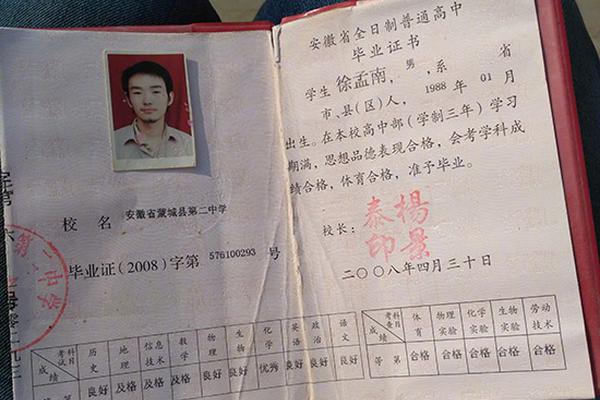 校名 安徽省蒙城县第二中学
毕业证(2008)字第 576100293 号
第二中学
考试科目 成绩 历史 地理 信息技术 数学 物理 生物 化学 英语 政治 语文
等第 良好 及格 及格 及格 良好 良好 优秀 良好 良好 良好
安徽省全日制普通高中
毕业证书
学生 徐孟南,男,系 省
市、县(区)人,1988 年 01 月
出生。在本校高中部(学制三年)学习
期满,思想品德表现合格,会考学科成
绩合格,体育合格,准予毕业。
校长: 楊景泰印
二〇〇八年四月三十日
考查科目 成绩 体育 物理实验 化学实验 生物实验 劳动技术
等第 合格 合格 合格 合格 合格